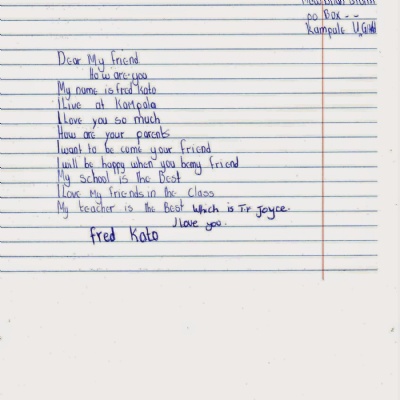 PO Box - -
Kampala
Dear My friend
How are you
My name is fred Kato
I Live at Kampala
I Love you so much
How are your parents
I want to be come your friend
I will be happy when you be my friend
My school is the Best
I Love My friends in the Class
My teacher is the Best which is T.r Joyce.
I love you.
fred Kato